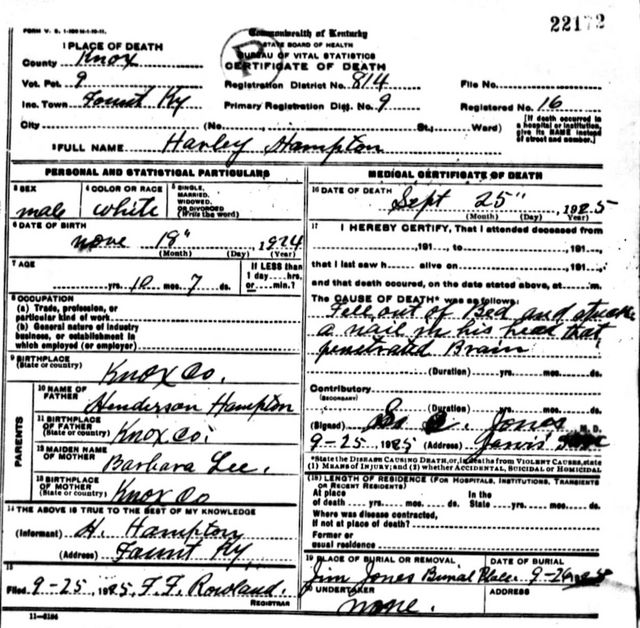 FORM V. S.
22172
1 PLACE OF DEATH
County Knox
Vot. Pct. 9
Inc. Town Fount Ky
City (No. St.; Ward)
Commonwealth of Kentucky
STATE BOARD OF HEALTH
BUREAU OF VITAL STATISTICS
CERTIFICATE OF DEATH
Registration District No. 814
Primary Registration Dist. No. 9
File No.
Registered No. 16
[If death occurred in a hospital or institution, give its NAME instead of street and number.]
2 FULL NAME Harley Hampton
PERSONAL AND STATISTICAL PARTICULARS
3 SEX
male
4 COLOR OR RACE
white
5 SINGLE, MARRIED, WIDOWED, OR DIVORCED (Write the word)
6 DATE OF BIRTH
nove 18" 1924
(Month) (Day) (Year)
7 AGE
yrs. 10 mos. 7 ds.
If LESS than 1 day, hrs. or min.?
8 OCCUPATION
(a) Trade, profession, or particular kind of work
(b) General nature of industry business, or establishment in which employed (or employer)
9 BIRTHPLACE
(State or country) Knox Co.
PARENTS
10 NAME OF FATHER Henderson Hampton
11 BIRTHPLACE OF FATHER (State or country) Knox Co.
12 MAIDEN NAME OF MOTHER Barbara Lee.
13 BIRTHPLACE OF MOTHER (State or country) Knox Co
14 THE ABOVE IS TRUE TO THE BEST OF MY KNOWLEDGE
(Informant) H. Hampton
(Address) Fount Ky.
15
Filed 9-25, 1925 F. F. Rowland.
REGISTRAR
11-3184
MEDICAL CERTIFICATE OF DEATH
16 DATE OF DEATH
Sept 25" 1925
(Month) (Day) (Year)
17 I HEREBY CERTIFY, That I attended deceased from
191 , to 191 ,
that I last saw h alive on 191 ,
and that death occurred, on the date stated above, at m.
The CAUSE OF DEATH* was as follows:
Fell out of Bed and stuck
a nail in his head that
penetrated Brain
(Duration) yrs. mos. ds.
Contributory
(SECONDARY)
(Duration) yrs. mos. ds.
(Signed) Jones M. D.
9-25 1925 (Address) Jarvis
*State the DISEASE CAUSING DEATH, or, in deaths from VIOLENT CAUSES, state (1) MEANS OF INJURY; and (2) whether ACCIDENTAL, SUICIDAL or HOMICIDAL
18 LENGTH OF RESIDENCE (FOR HOSPITALS, INSTITUTIONS, TRANSIENTS OR RECENT RESIDENTS)
At place of death yrs. mos. ds. In the State yrs. mos. ds.
Where was disease contracted, If not at place of death?
Former or usual residence
19 PLACE OF BURIAL OR REMOVAL
Jim Jones Burial Place.
DATE OF BURIAL
9-26 1925
20 UNDERTAKER
none.
ADDRESS